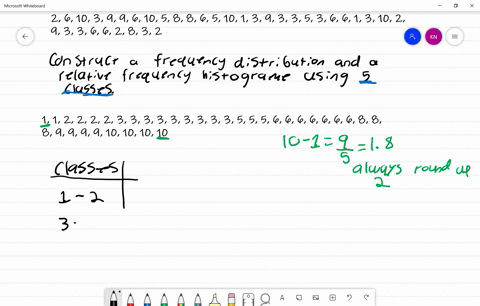 Microsoft Whiteboard
2, 6, 10, 3, 9, 9, 6, 10, 5, 8, 8, 6, 5, 10, 1, 3, 9, 3, 3, 5, 3, 6, 6, 1, 3, 10, 2,
9, 3, 3, 6, 6, 2, 8, 3, 2
KN
Construct a frequency distribution and a
relative frequency histograme using 5
classes.
1, 1, 2, 2, 2, 2, 3, 3, 3, 3, 3, 3, 3, 3, 3, 5, 5, 5, 6, 6, 6, 6, 6, 6, 6, 8, 8,
8, 9, 9, 9, 9, 10, 10, 10, 10
10-1=9/5=1.8
always round up
2
classes
1-2
3-